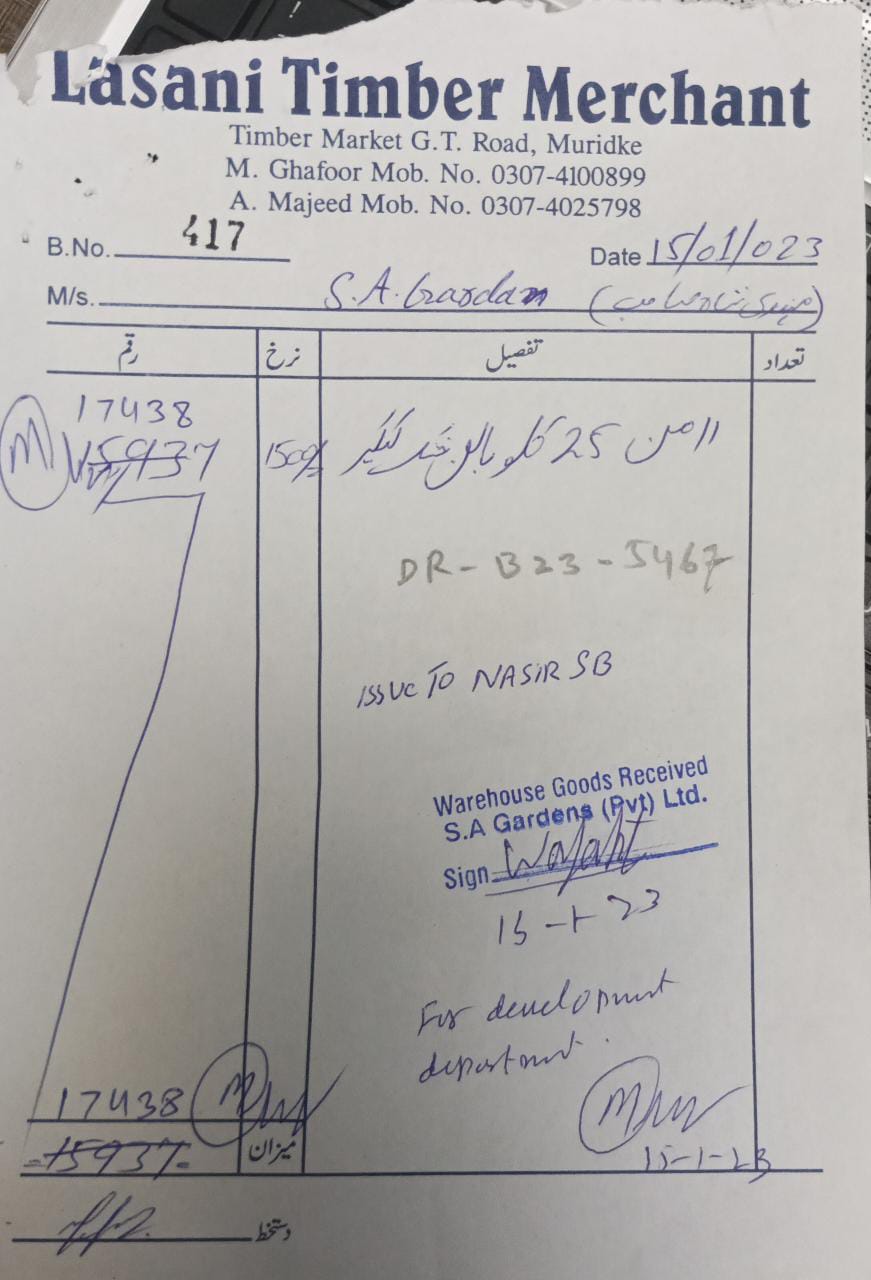 Lasani Timber Merchant
Timber Market G.T. Road, Muridke
M. Ghafoor Mob. No. 0307-4100899
A. Majeed Mob. No. 0307-4025798
B.No. 417 Date 15/01/023
M/s. S.A. Garden
تعداد تفصیل نرخ رقم
17438
11 من 25 کلو بالن کیکر 1500/ 15937
DR-B23-5467
ISSUE TO NASIR SB
Warehouse Goods Received
S.A Gardens (Pvt) Ltd.
Sign
15-1-23
For development
department.
17438
میزان 15937
15-1-23
دستخط